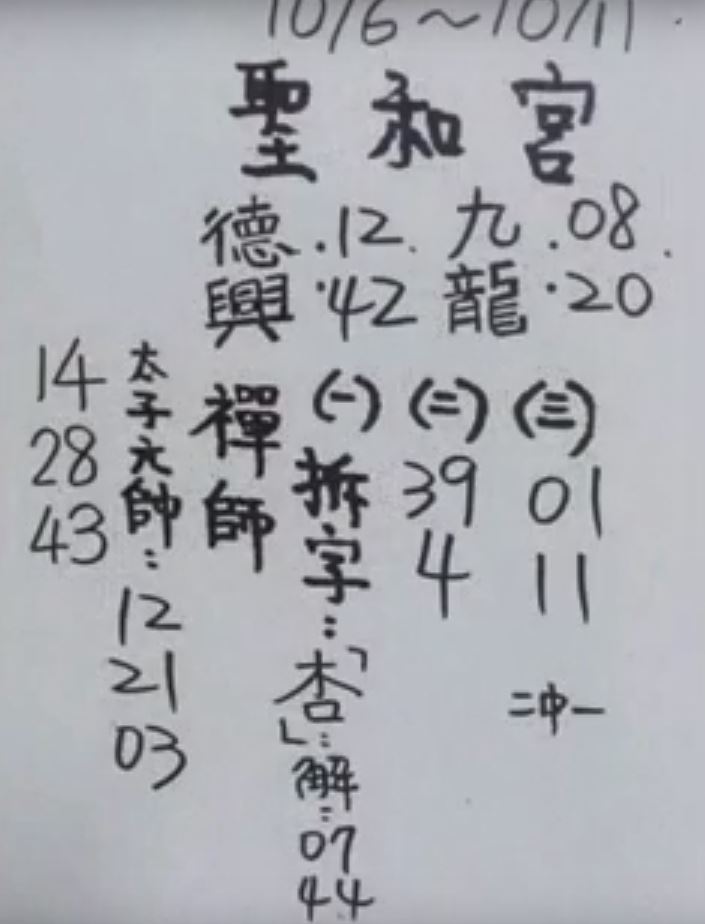 10/6～10/11
聖和宮
德興 .12. .42
九龍 .08. .20
(一)
拆字：「杏」：解：07 44
(二)
39
4
(三)
01
11
二中一
禪師
太子元帥：12 21 03
14
28
43